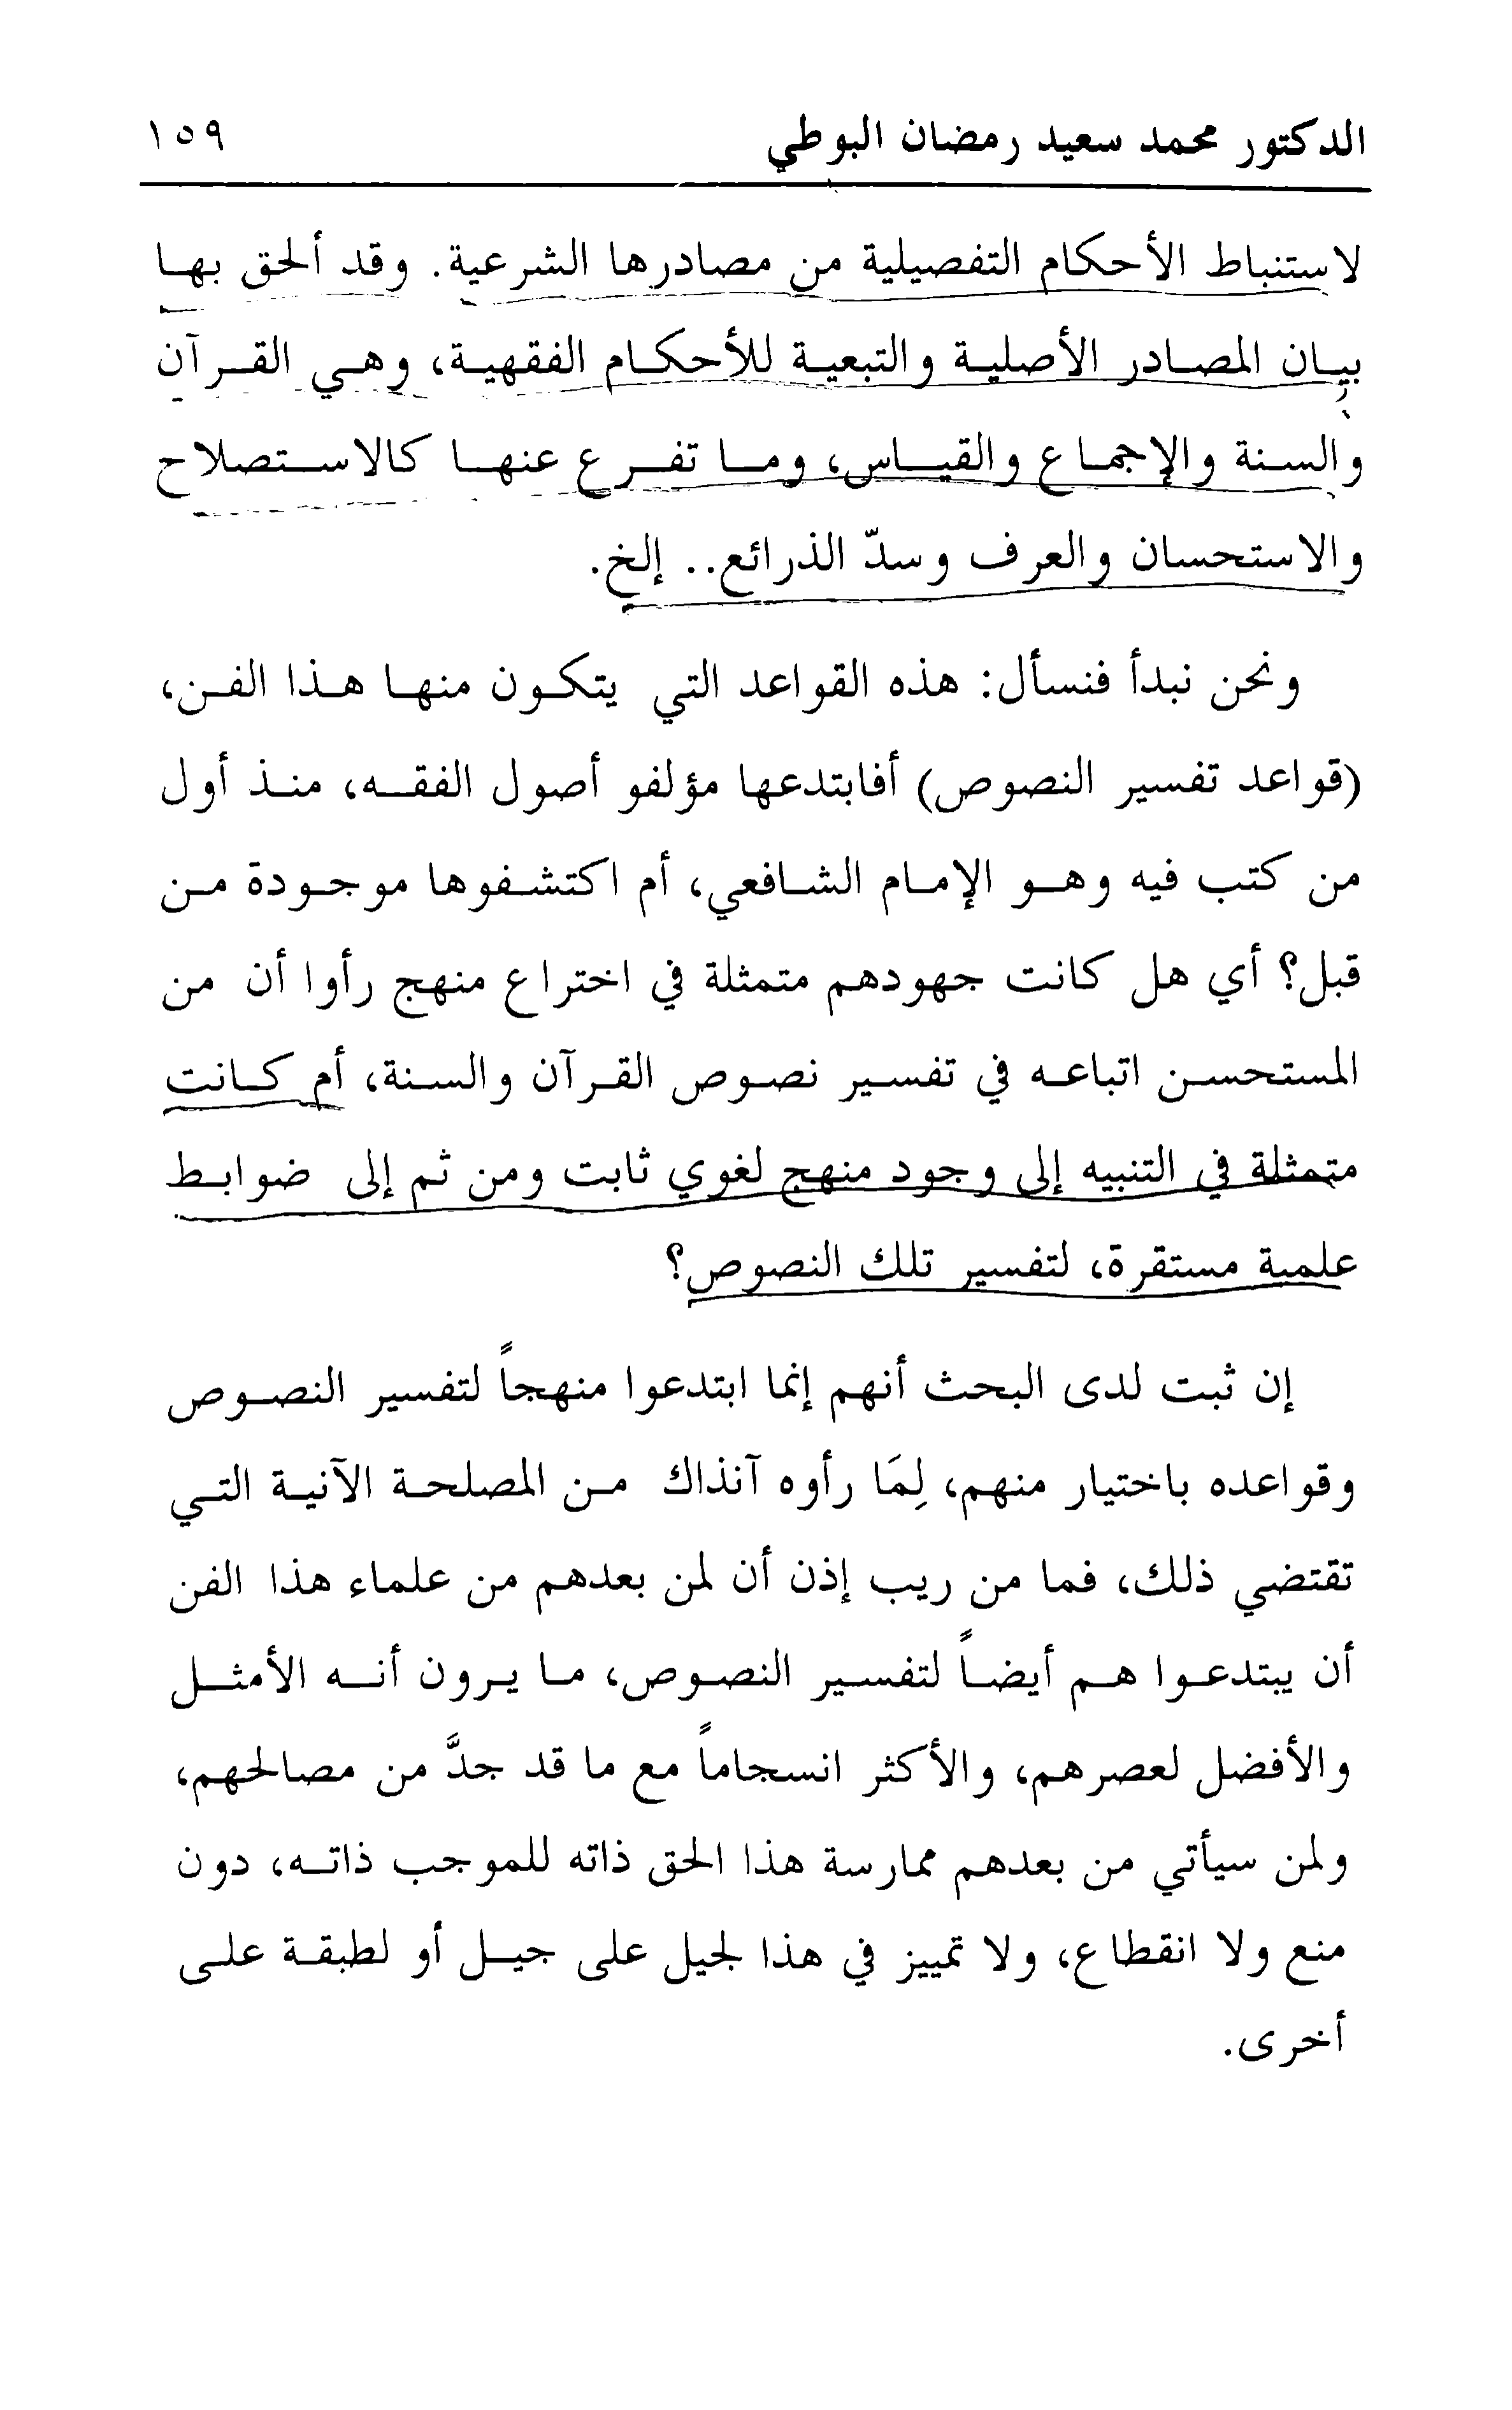 الدكتور محمد سعيد رمضان البوطي ١٥٩
لاستنباط الأحكام التفصيلية من مصادرها الشرعية. وقد ألحق بها
بيان المصادر الأصلية والتبعية للأحكام الفقهية، وهي القرآن
والسنة والإجماع والقياس، وما تفرع عنها كالاستصلاح
والاستحسان والعرف وسدّ الذرائع.. إلخ.
ونحن نبدأ فنسأل: هذه القواعد التي يتكون منها هذا الفن،
(قواعد تفسير النصوص) أفابتدعها مؤلفو أصول الفقه، منذ أول
من كتب فيه وهو الإمام الشافعي، أم اكتشفوها موجودة من
قبل؟ أي هل كانت جهودهم متمثلة في اختراع منهج رأوا أن من
المستحسن اتباعه في تفسير نصوص القرآن والسنة، أم كانت
متمثلة في التنبيه إلى وجود منهج لغوي ثابت ومن ثم إلى ضوابط
علمية مستقرة، لتفسير تلك النصوص؟
إن ثبت لدى البحث أنهم إنما ابتدعوا منهجاً لتفسير النصوص
وقواعده باختيار منهم، لِمَا رأوه آنذاك من المصلحة الآنية التي
تقتضي ذلك، فما من ريب إذن أن لمن بعدهم من علماء هذا الفن
أن يبتدعوا هم أيضاً لتفسير النصوص، ما يرون أنه الأمثل
والأفضل لعصرهم، والأكثر انسجاماً مع ما قد جدَّ من مصالحهم،
ولمن سيأتي من بعدهم ممارسة هذا الحق ذاته للموجب ذاته، دون
منع ولا انقطاع، ولا تمييز في هذا لجيل على جيل أو لطبقة على
أخرى.